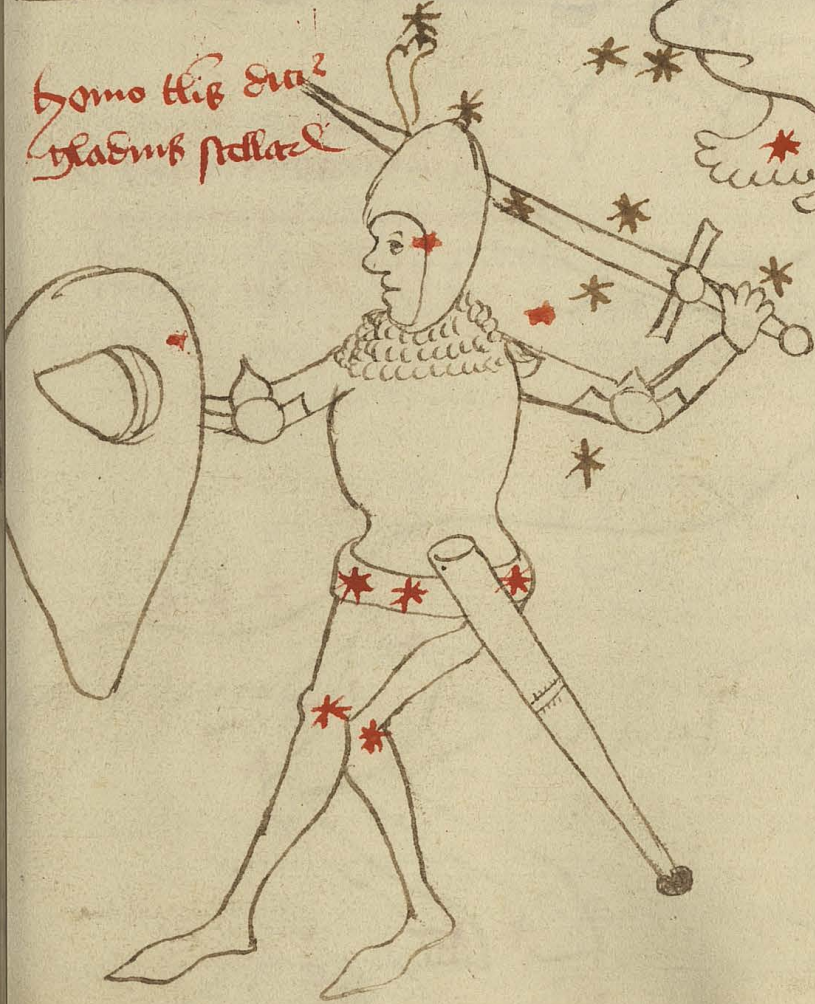 homo tlis dicit᷑
gladius stellar